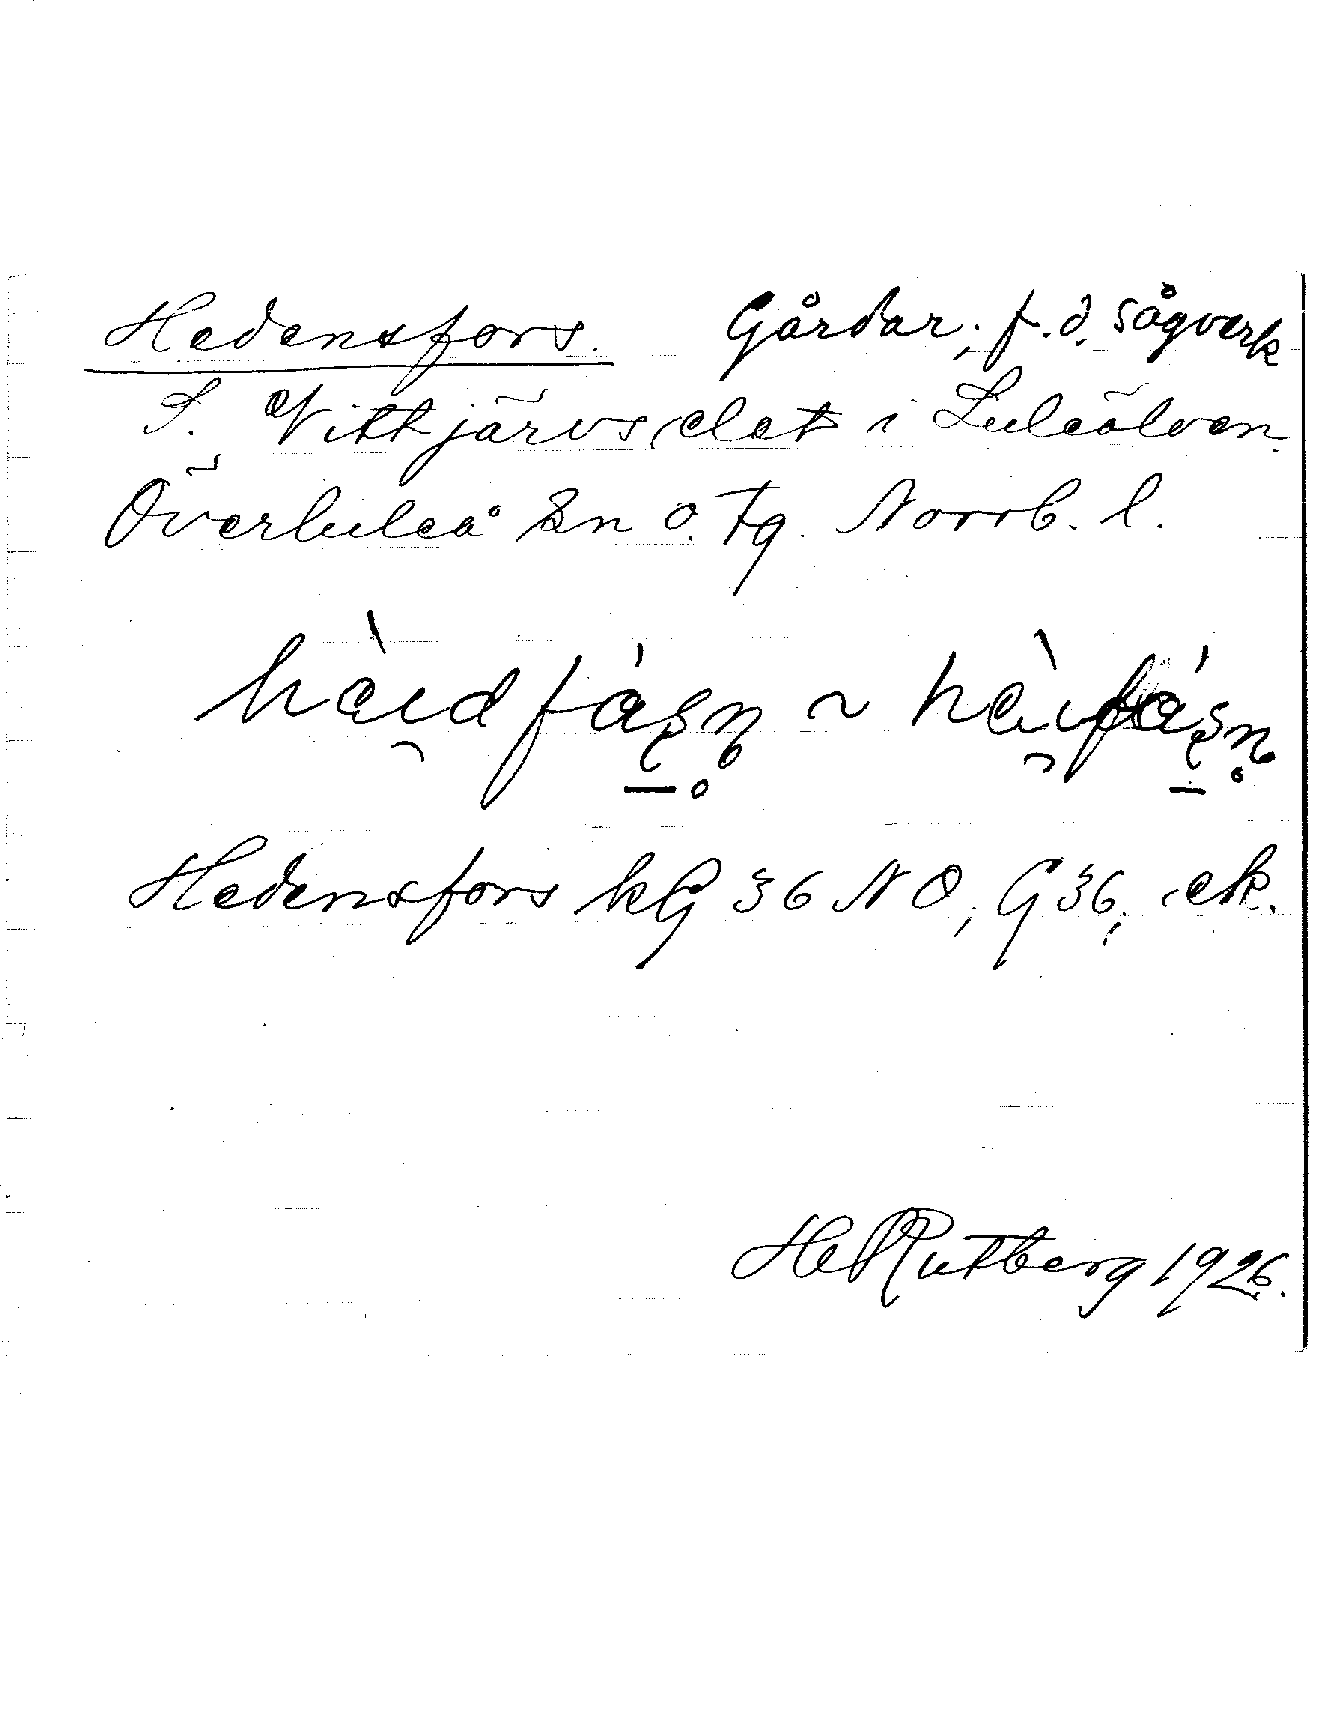 Hedensfors. Gårdar, f. d. sågverk
S. Vittjärvs elet i Luleälven.
Överluleå Sn o. Tg. Norrb. l.
hàidfáʂn̥ ~ hàifáʂn̥
Hedensfors kG 36 NO, G 36, ek.
HelRutberg 1926.